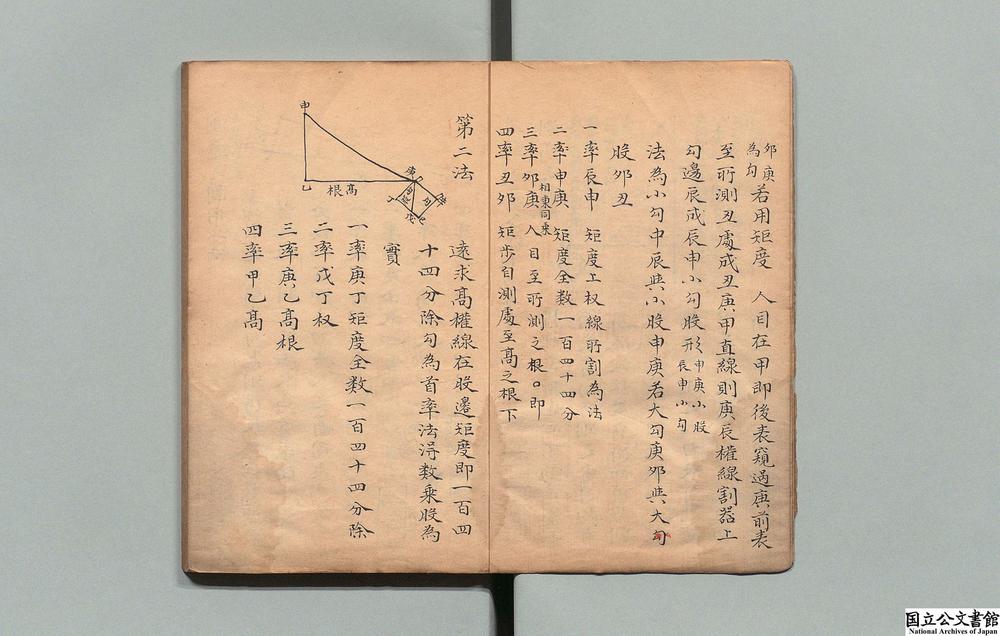 卯庚
為勾
若用矩度　人目在甲即後表窺過庚前表
至所測丑處成丑庚甲直線則庚辰權線割器上
勾邊辰成辰申小勾股形
申庚小股
辰申小勾
法為小勾申辰與小股申庚若大勾庚卯與大勾
股卯丑
一率辰申　矩度上权線所割為法
二率申庚　矩度全数一百四十四分
相乗同乗
三率卯庚　人目至所測之根。即
四率丑卯　矩步自測處至髙之根下
第二法
遠求髙權線在股邊矩度即一百四
十四分除勾為首率法淂数乗股為
實
一率庚丁矩度全数一百四十四分除
二率戊丁权
三率庚乙髙根
四率甲乙髙
申
乙
髙
根
丁
戊
国立公文書館
National Archives of Japan